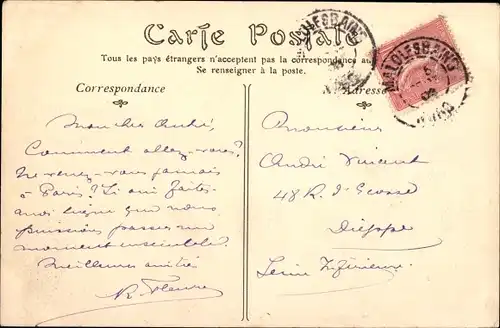 Carte Postale
Tous les pays étrangers n'acceptent pas la correspondance au
Se renseigner à la poste.
Correspondance
Adresse
MALO LES BAINS
MALO LES BAINS
NORD
Mon cher André,
Comment allez-vous?
Ne venez-vous jamais
à Paris? Si oui faites-
moi signe que nous
puissions passer un
moment ensemble.
Meilleures amitiés
R. Fleury
Monsieur
André Vincent
48 R. d'Ecosse
Dieppe
Seine Inférieure